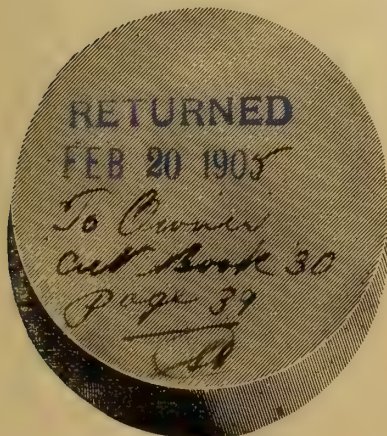 RETURNED
FEB 20 1905
To Owner
cut Book 30
Page 39